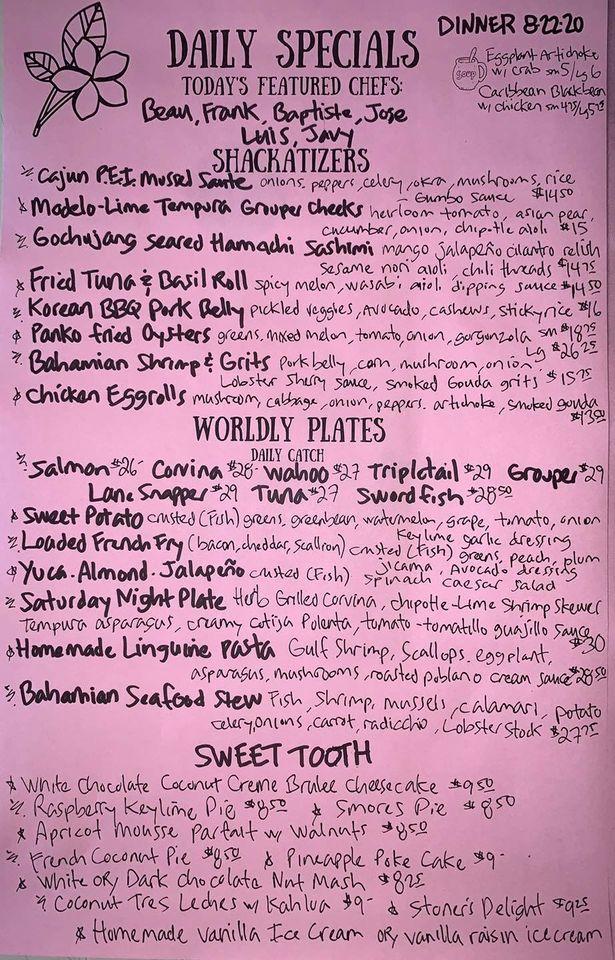 DINNER 8-22-20
DAILY SPECIALS
TODAY'S FEATURED CHEFS:
Beau, Frank, Baptiste, Jose
Luis, Javy
soup
Eggplant Artichoke
w/ crab sm 5/Lg 6
Caribbean Blackbean
w/ chicken sm
SHACKATIZERS
Cajun P.E.I. Mussel Saute onions, peppers, celery, okra, mushrooms, rice
- Gumbo Sauce $14.50
Modelo-Lime Tempura Grouper Cheeks heirloom tomato, asian pear,
cucumber, onion, chipotle aioli $15
Gochujang Seared Hamachi Sashimi mango jalapeño cilantro relish
Sesame nori aioli, chili threads $14.75
Fried Tuna & Basil Roll spicy melon, wasabi aioli dipping sauce $14.50
Korean BBQ Pork Belly pickled veggies, avocado, cashews, sticky rice $16
Panko fried Oysters greens, mixed melon, tomato, onion, gorgonzola sm $18.25
Lg $26.25
Bahamian Shrimp & Grits Pork belly, corn, mushroom, onion
Lobster Sherry Sauce, smoked Gouda grits $15.75
Chicken Eggrolls mushroom, cabbage, onion, peppers. artichoke, smoked gouda
$13.50
WORLDLY PLATES
DAILY CATCH
Salmon $26- Corvina $28- Wahoo $27 Tripletail $29 Grouper $29
Lane Snapper $29 Tuna $27 Swordfish $28.50
Sweet Potato crusted (Fish) greens, greenbean, watermelon, grape, tomato, onion
Keylime garlic dressing
Loaded French Fry (bacon, cheddar, scallion) crusted (Fish) greens, peach, plum
Jicama, Avocado dressing
Yuca. Almond. Jalapeño crusted (Fish) spinach caesar salad
Saturday Night Plate Herb Grilled Corvina, chipotle-lime Shrimp Skewer
Tempura asparagus, creamy Cotija Polenta, tomato-tomatillo guajillo sauce
$30
Homemade Linguine Pasta Gulf Shrimp, Scallops, eggplant,
asparagus, mushrooms, roasted poblano cream sauce $28.50
Bahamian Seafood Stew Fish, Shrimp, mussels, calamari, potato
celery, onions, carrot, radicchio, Lobster Stock $27.75
SWEET TOOTH
White Chocolate Coconut Creme Brulee Cheesecake $9.50
Raspberry Keylime Pie $8.50 Smores Pie $8.50
Apricot Mousse Parfait w/ Walnuts $8.50
French Coconut Pie $8.50 Pineapple Poke Cake $9-
White OR Dark chocolate Nut Mash $8.25
Coconut Tres Leches w/ Kahlua $9- Stoner's Delight $9.25
Homemade Vanilla Ice Cream OR vanilla raisin ice cream